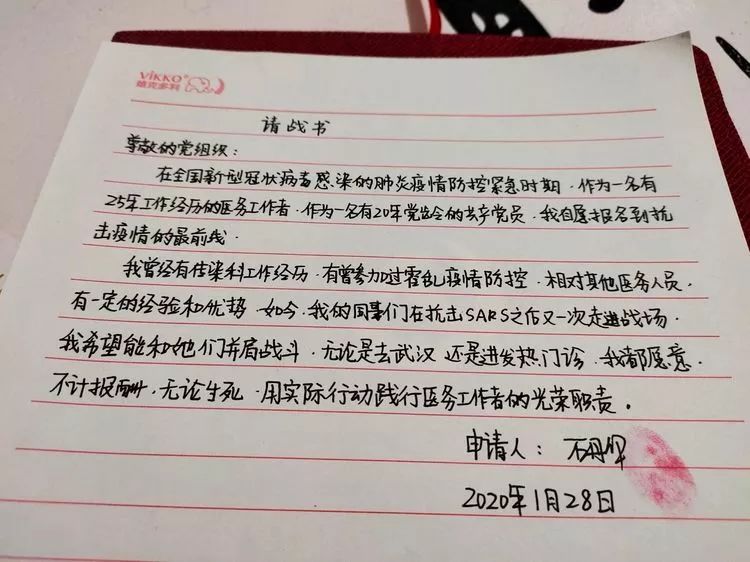 VIKKO
维克多利
请战书
尊敬的党组织：
在全国新型冠状病毒感染的肺炎疫情防控紧急时期，作为一名有
25年工作经历的医务工作者，作为一名有20年党龄的共产党员，我自愿报名到抗
击疫情的最前线.
我曾经有传染科工作经历，有曾参加过霍乱疫情防控，相对其他医务人员，
有一定的经验和优势，如今，我的同事们在抗击SARS之后又一次走进战场，
我希望能和他们并肩战斗，无论是去武汉还是进发热门诊，我都愿意，
不计报酬，无论生死，用实际行动践行医务工作者的光荣职责。
申请人：
2020年1月28日